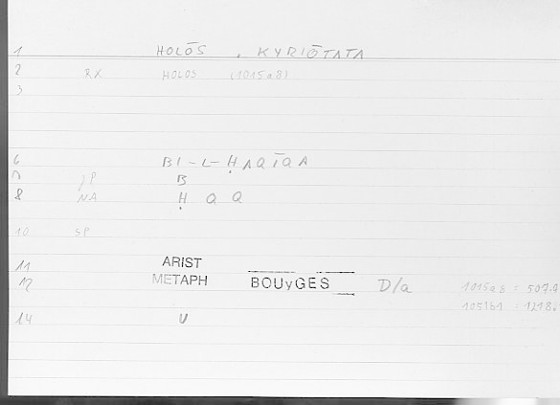 1 HOLŌS . KYRIŌTATA
2 RX HOLOS (1015a8)
3
6 BI-L-ḤAQĪQA
7 JP B
8 NA Ḥ Q Q
10 SP
11 ARIST
12 METAPH BOUyGES D/a 1015a8 = 507.
1051b1 : 1218.
14 U